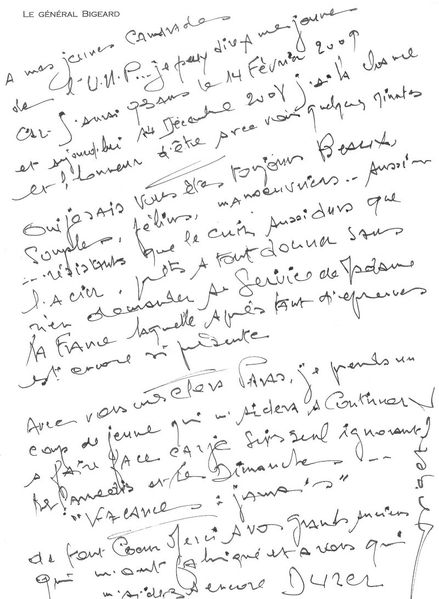 LE GÉNÉRAL BIGEARD
A mes jeunes Camarades
de l'U.N.P... je peux dire mes jeunes
car j'aurai 93 ans le 14 Février 2009
et aujourd'hui 14 Décembre 2008 j'ai la chance
et l'honneur d'être avec vous quelques minutes
Oui je sais vous êtes toujours Beaux,
Souples, félins, manoeuvriers.. Aussi
...résistants que le cuir, aussi durs que
l'acier. prêts à tout donner sans
rien demander au Service de Madame
la France laquelle après tant d'épreuves
est encore si présente
Avec vous mes chers Paras, je prends un
coup de jeune qui m'aidera à Continuer
à faire face car je suis seul ignorant
les Samedis et les Dimanches ---
"Vacances : jamais"
de tout Coeur Merci à vos grands anciens
qui m'ont fabriqué et à vous qui
m'aidez encore Durer